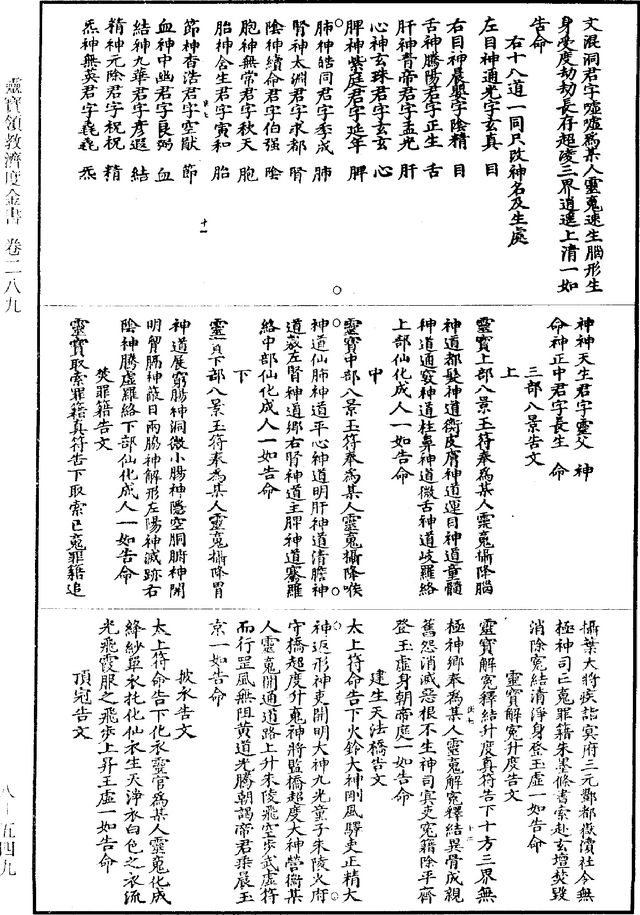 文混洞君字噓噓為某人靈䰟速生腦形生
身受度劫劫長存超陵三界逍遥上清一如
告命
右十八道一同尺改神名及生處
左目神通光字玄真　目
右目神晨嬰字陰精　目
舌神騰陽君字正生　舌
肝神青帝君字孟光　肝
心神玄珠君字玄玄　心
脾神紫庭君字延年　脾
肺神皓同君字季成　肺
腎神太淵君字求都　腎
陰神續命君字伯强　陰
胞神無常君字秋天　胞
胎神含生君字寅和　胎
節神香浩君字空獸　節
血神中幽君字艮弼　血
結神九華君字彥遐　結
精神元除君字祝祝　精
炁神無英君字堯堯　炁
神神天生君字靈父　神
命神正中君字長生　命
三部八景告文
上
靈寶上部八景玉符奉為某人靈䰟攝降腦
神道都髮神道衡皮膚神道運目神道童髓
神道通竅神道柱鼻神道微舌神道歧羅絡
上部仙化成人一如告命
中
靈寶中部八景玉符奉為某人靈䰟攝降喉
神道仙肺神道平心神道明肝神道清膽神
道放左腎神道鄉右腎神道主脾神道審羅
絡中部仙化成人一如告命
下
靈寶下部八景玉符奉為某人靈䰟攝降胃
神道展窮腸神洞微小腸神隱空胴腑神開
明胷膈神蔽日兩脇神解形左陽神滅跡右
陰神騰虛羅絡下部仙化成人一如告命
焚罪籍告文
靈寶取索罪籍真符告下取索亡䰟罪籍追
攝葉大將疾詣冥府三元酆都嶽瀆社令無
極神司亡䰟罪籍朱墨條書索赴玄壇焚毀
消除寃結清淨身登玉虛一如告命
靈寶解寃升度告文
靈寶解寃釋結升度真符告下十方三界無
極神鄉奉為某人靈䰟解寃釋結異骨成親
舊怨消滅惡根不生神司冥吏寃籍除平齊
登玉虛身朝帝庭一如告命
建生天法橋告文
太上符命告下火鈴大神剛風驛吏正精大
神返形神吏開明大神九光童子朱陵火府
守橋超度升䰟神將監橋超度大神營衛某
人靈䰟開通道路上升朱陵飛空步武虛符
而行罡風無阻黃道光騰朝謁帝君乘晨玉
京一如告命
披衣告文
太上符命告下化衣靈官為某人靈䰟化成
絳紗單衣托化仙衣生天淨衣白色之衣流
光飛霞服之飛步上昇王虛一如告命
頂冠告文
靈寶領教濟度金書　卷二八九
八－五四九
十一
十二